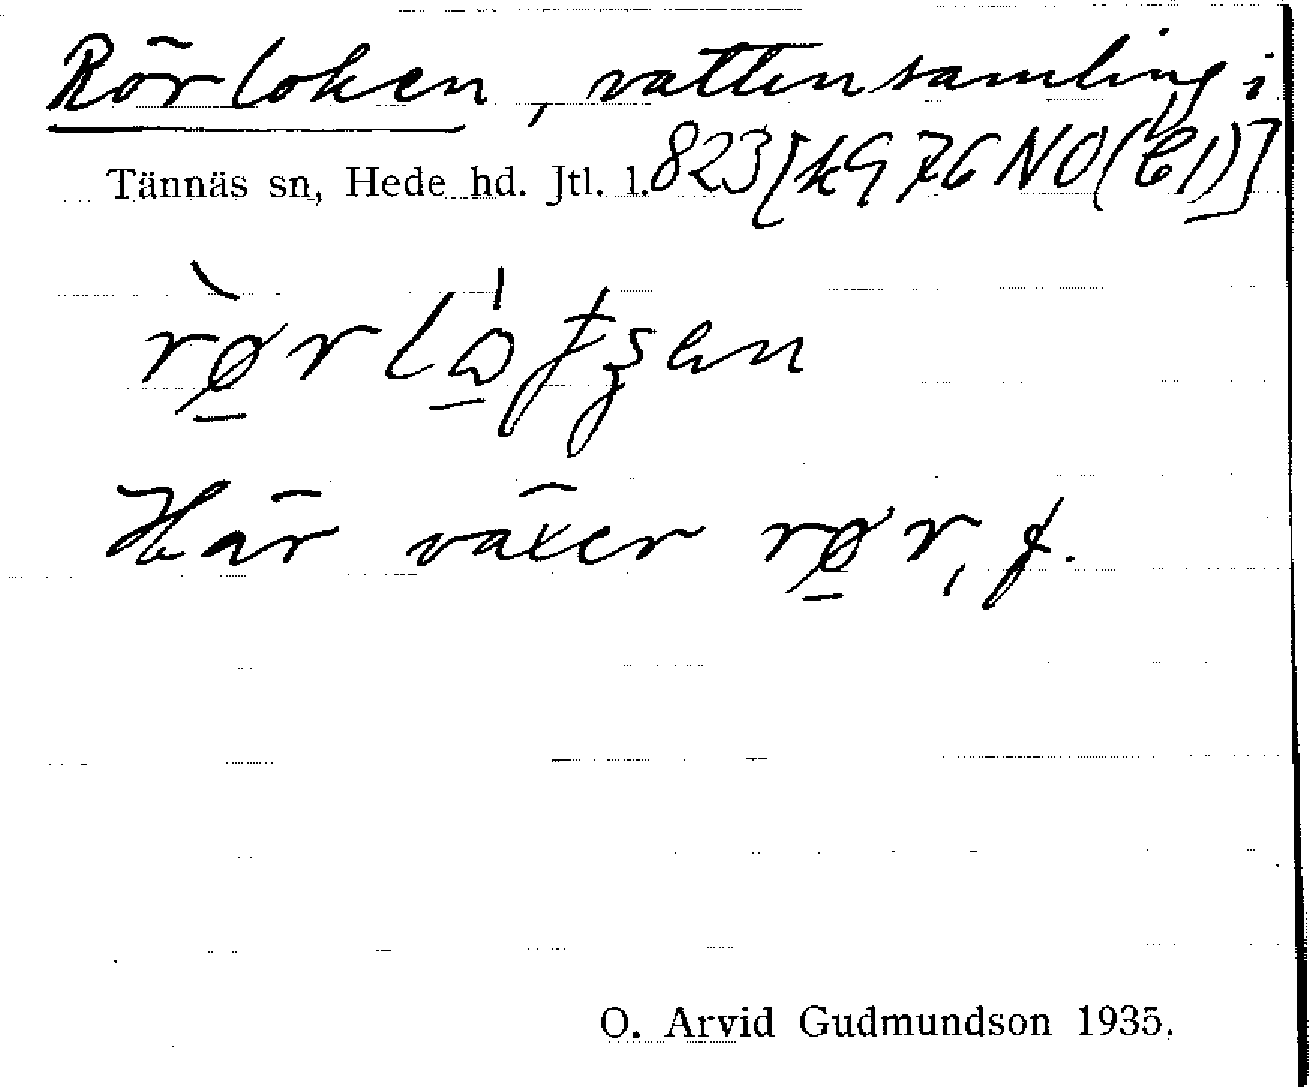 Rörloken, vattensamling i
Tännäs sn, Hede hd. Jtl. l. 823 [k976NO(61)]
Här växer rør, f.
O. Arvid Gudmundson 1935.